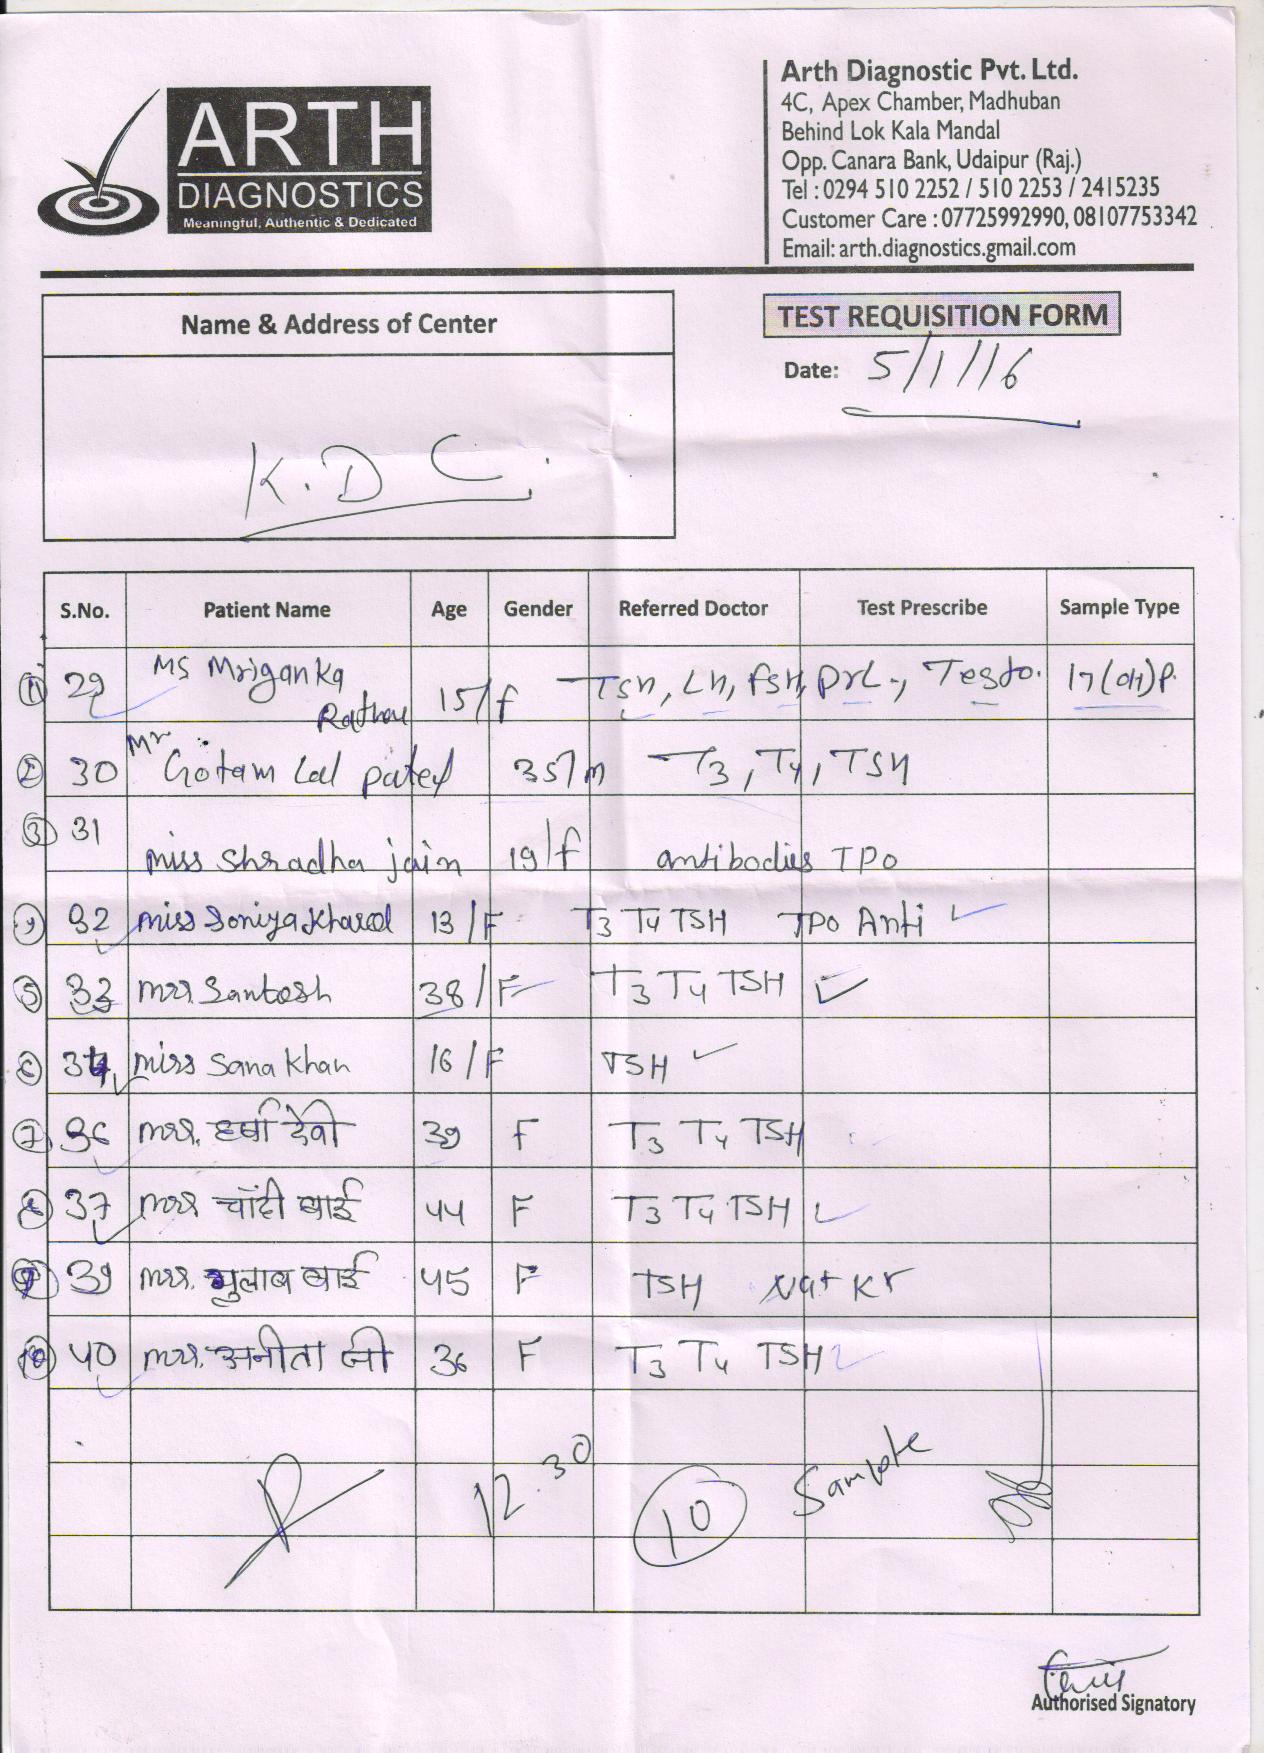 ARTH
DIAGNOSTICS
Meaningful, Authentic & Dedicated
Arth Diagnostic Pvt. Ltd.
4C, Apex Chamber, Madhuban
Behind Lok Kala Mandal
Opp. Canara Bank, Udaipur (Raj.)
Tel : 0294 510 2252 / 510 2253 / 2415235
Customer Care : 07725992990, 08107753342
Email: arth.diagnostics.gmail.com
Name & Address of Center
K. D C.
TEST REQUISITION FORM
Date: 5/1/16
S.No. Patient Name Age Gender Referred Doctor Test Prescribe Sample Type
1 29 MS Mriganka Rathore 15/f TSH, LH, FSH, PrL, Testo. 17(OH)P.
2 30 Mr Gotam Lal patel 35/m T3, T4, TSH
3 31 miss Shradha jain 19/f antibodies TPO
4 32 miss Soniya 13/F T3 T4 TSH TPO Anti
5 33 mrs. Santosh 38/F T3 T4 TSH
6 34 miss Sana Khan 16/F TSH
7 36 mrs. हर्षा देवी 39 F T3 T4 TSH
8 37 mrs. चाँदी बाई 44 F T3 T4 TSH
9 39 mrs. गुलाब बाई 45 F TSH Na+ K+
10 40 mrs. अनीता जी 36 F T3 T4 TSH
12.30 10 Sample
Authorised Signatory